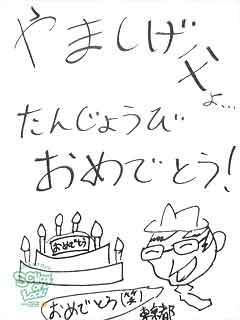 やましげ父
よ…
たんじょうび
おめでとう!
おめでとう
おめでとう(笑)